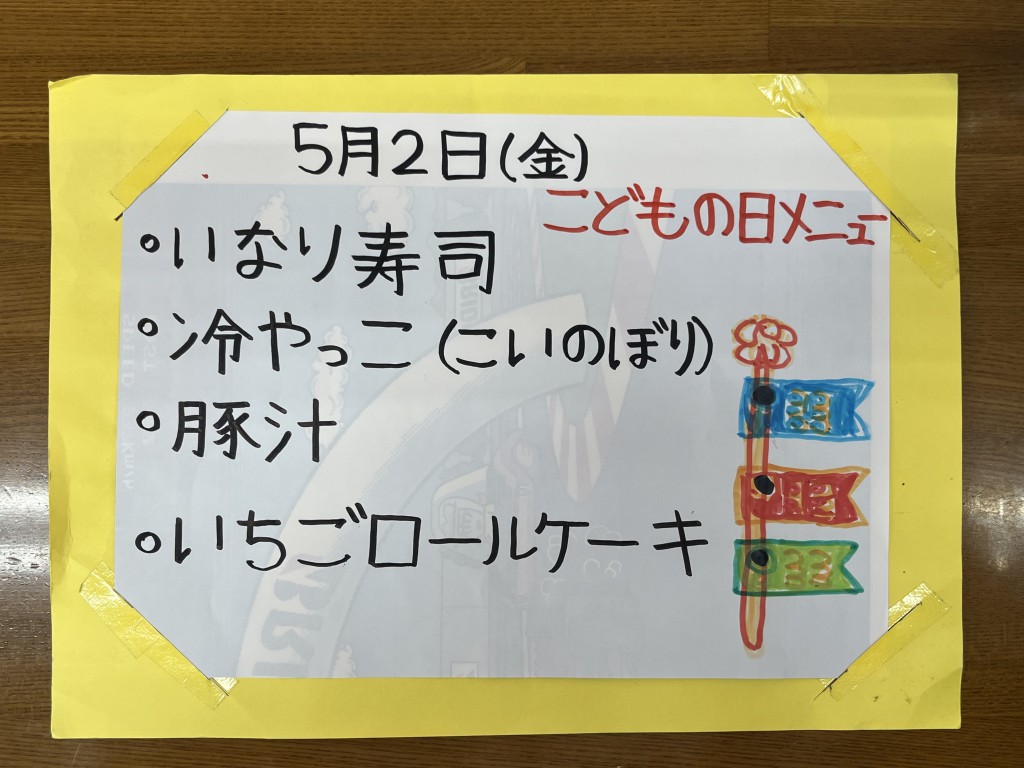 5月2日(金)
こどもの日メニュー
・いなり寿司
・冷やっこ(こいのぼり)
・豚汁
・いちごロールケーキ